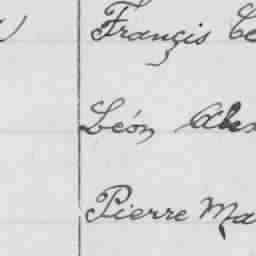 Françis Ce
Léon Alex
Pierre Ma